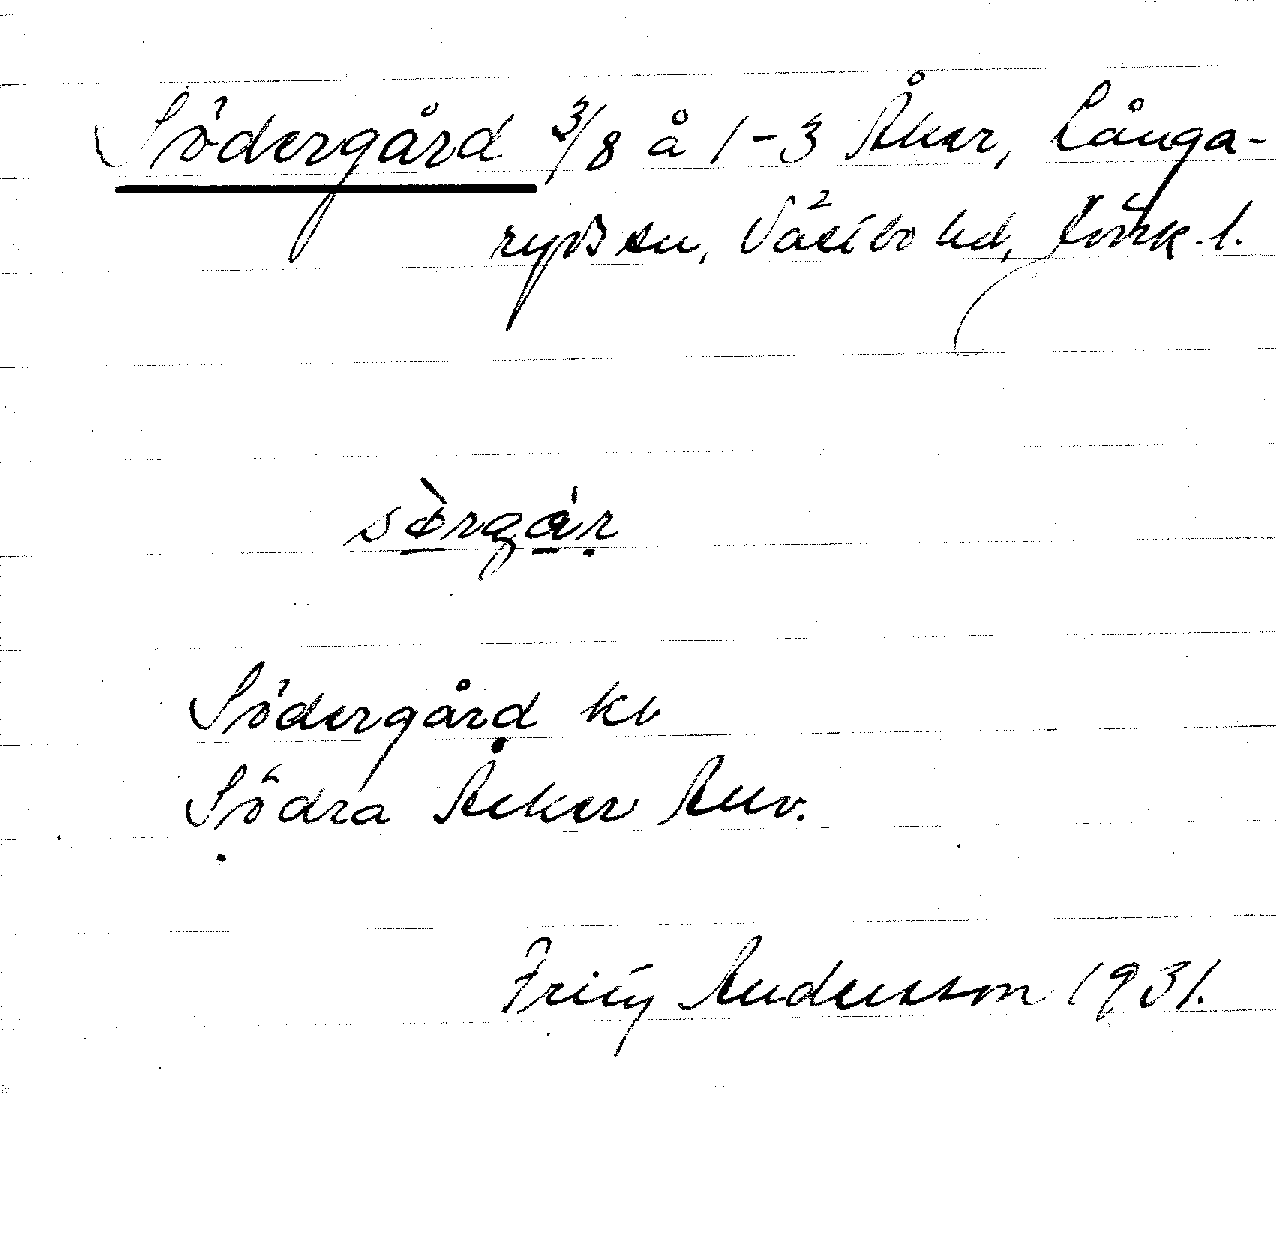 Södergård 3/8 å 1-3 Åker, Långa-
ryds sn, Västbo hd, Jönk. l.
sörgår
Södergård kb
Södra Åker Anv.
Fritz Andersson 1931.